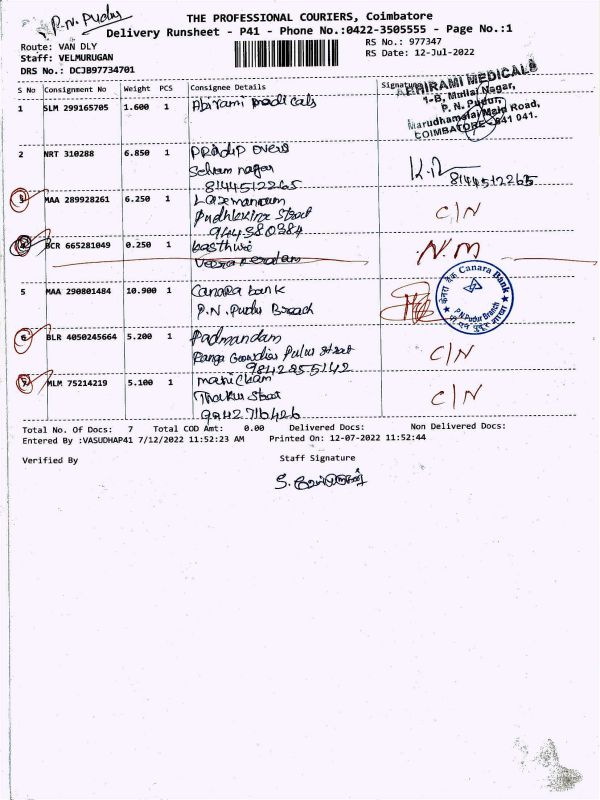 P.N. Pudur
THE PROFESSIONAL COURIERS, Coimbatore
Delivery Runsheet - P41 - Phone No.:0422-3505555 - Page No.:1
Route: VAN DLY
RS No.: 977347
Staff: VELMURUGAN
RS Date: 12-Jul-2022
DRS No.: DCJB97734701
S No Consignment No Weight PCS Consignee Details Signature
ABHIRAMI MEDICALS
1-B, Mullai Nagar,
P. N. Pudur,
Marudhamalai Main Road,
COIMBATORE - 641 041.
1 SLM 299165705 1.600 1 Abirami medicals
2 NRT 310288 6.850 1 Pradip
Selvam nagar
8144512265
K.R
8144512265
3 MAA 289928261 6.250 1 Laxemanam
Street
944380384
C/N
4 BCR 665281049 0.250 1 kasthuri
N.M
5 MAA 290801484 10.900 1 Canara bank
P.N. Pudur Breach
केनरा बैंक Canara Bank
P.N.Pudur Branch
6 BLR 4050245664 5.200 1 Padmandam
Street
9842855142
C/N
7 MLM 75214219 5.100 1 manickam
9842716426
C/N
Total No. Of Docs: 7 Total COD Amt: 0.00 Delivered Docs: Non Delivered Docs:
Entered By :VASUDHAP41 7/12/2022 11:52:23 AM Printed On: 12-07-2022 11:52:44
Verified By Staff Signature